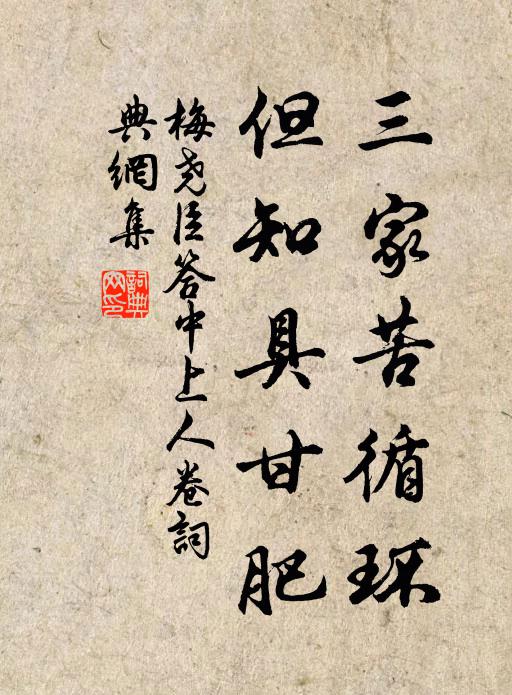 三家苦循环
但知具甘肥
梅尧臣答中上人卷詞
典網集
詞典网印